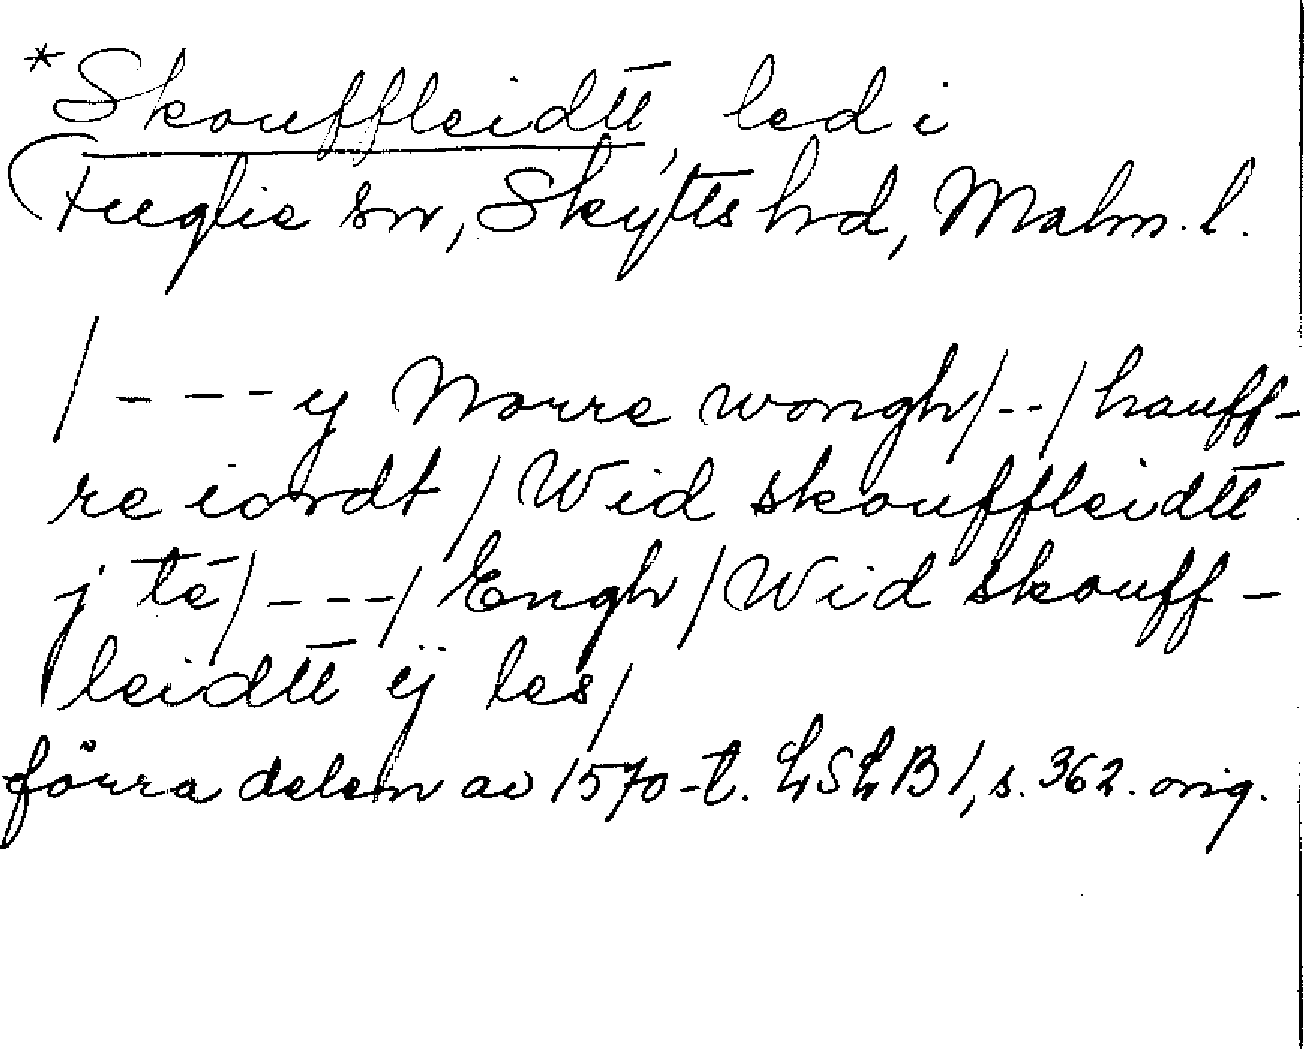 *Skouffleidtt, led i
Fuglie sn, Skytts hd, Malm. l.
/ - - - y Norre wongh / - - / hauff-
re iordt / Wid skouffleidtt
j te / - - - / Engh / Wid skouff-
leidtt ÿ les /
förra delen av 1570-t. LSLB 1, s. 362. orig.